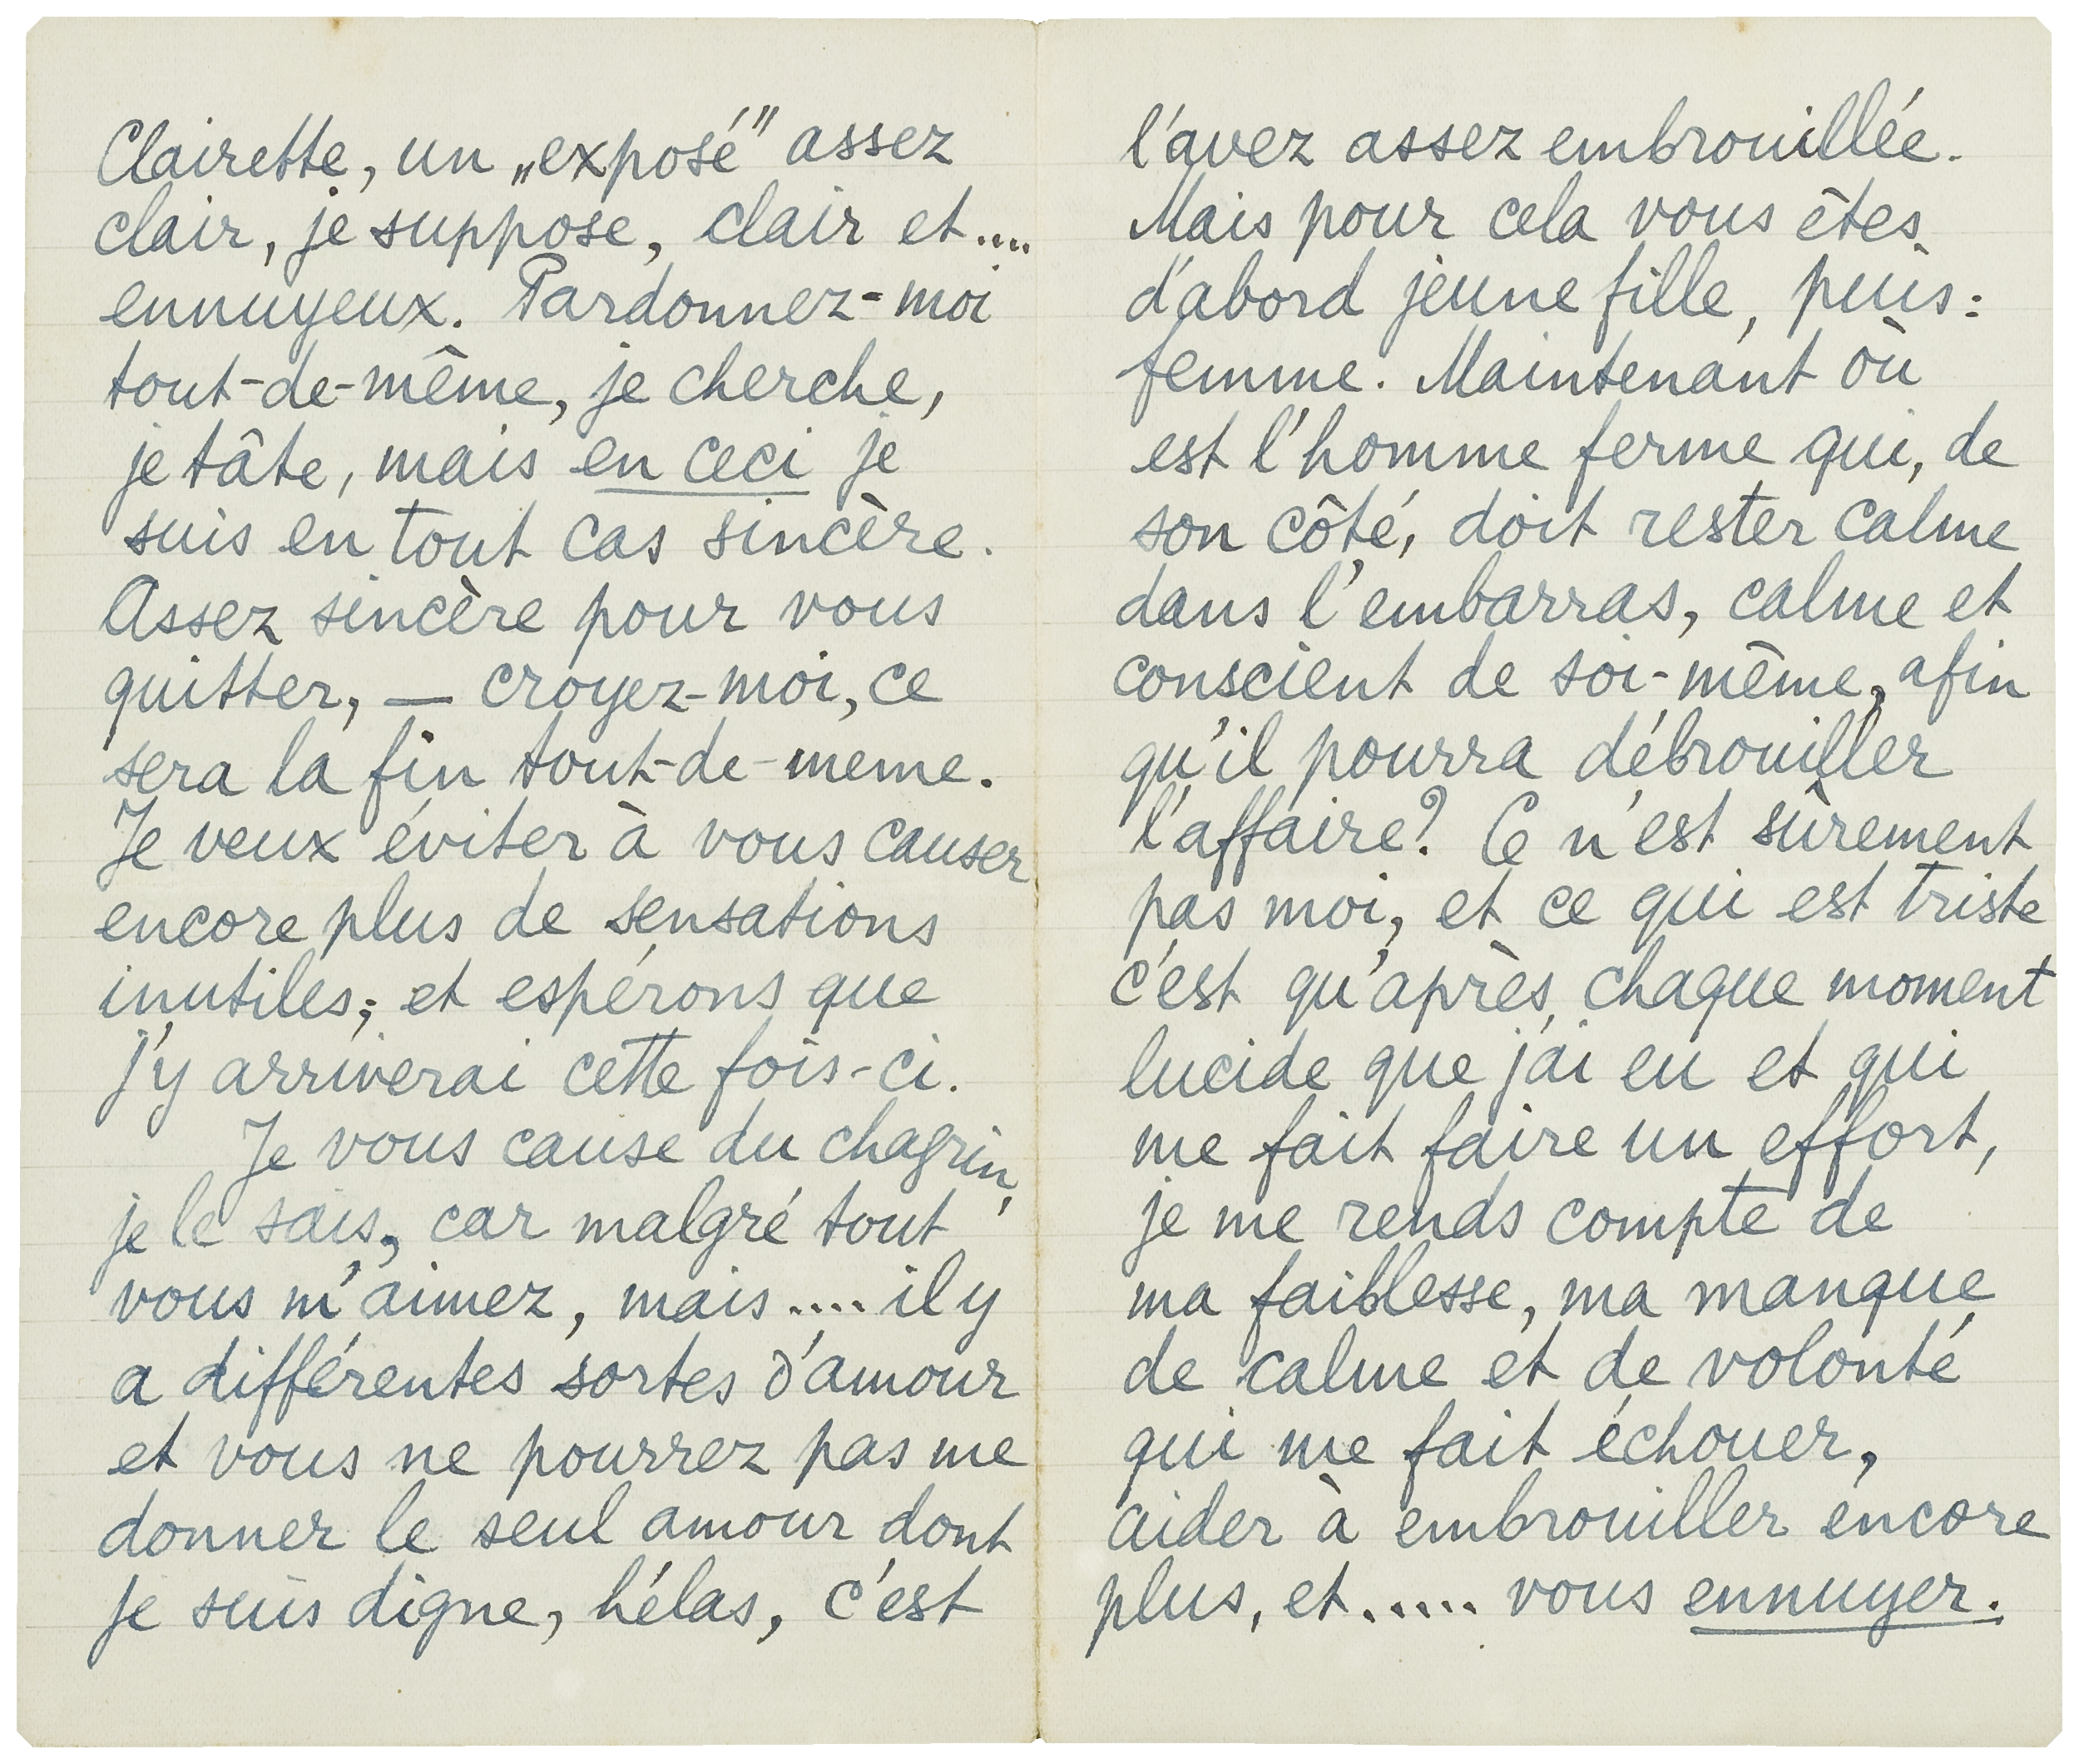 Clairette, un „exposé” assez
clair, je suppose, clair et....
ennuyeux. Pardonnez-moi
tout-de-même, je cherche,
je tâte, mais en ceci je
suis en tout cas sincère.
Assez sincère pour vous
quitter, — croyez-moi, ce
sera la fin tout-de-meme.
Je veux éviter à vous causer
encore plus de sensations
inutiles; et espérons que
j'y arriverai cette fois-ci.
Je vous cause du chagrin,
je le sais, car malgré tout
vous m'aimez, mais .... il y
a différentes sortes d'amour
et vous ne pourrez pas me
donner le seul amour dont
je suis digne, hélas, c'est
l'avez assez embrouillée.
Mais pour cela vous êtes
d'abord jeune fille, puis:
femme. Maintenant où
est l'homme ferme qui, de
son côté, doit rester calme
dans l'embarras, calme et
conscient de soi-même, afin
qu'il pourra débrouiller
l'affaire? Ce n'est sûrement
pas moi, et ce qui est triste
c'est qu'après chaque moment
lucide que j'ai eu et qui
me fait faire un effort,
je me rends compte de
ma faiblesse, ma manque
de calme et de volonté
qui me fait échouer,
aider à embrouiller encore
plus, et ..... vous ennuyer.